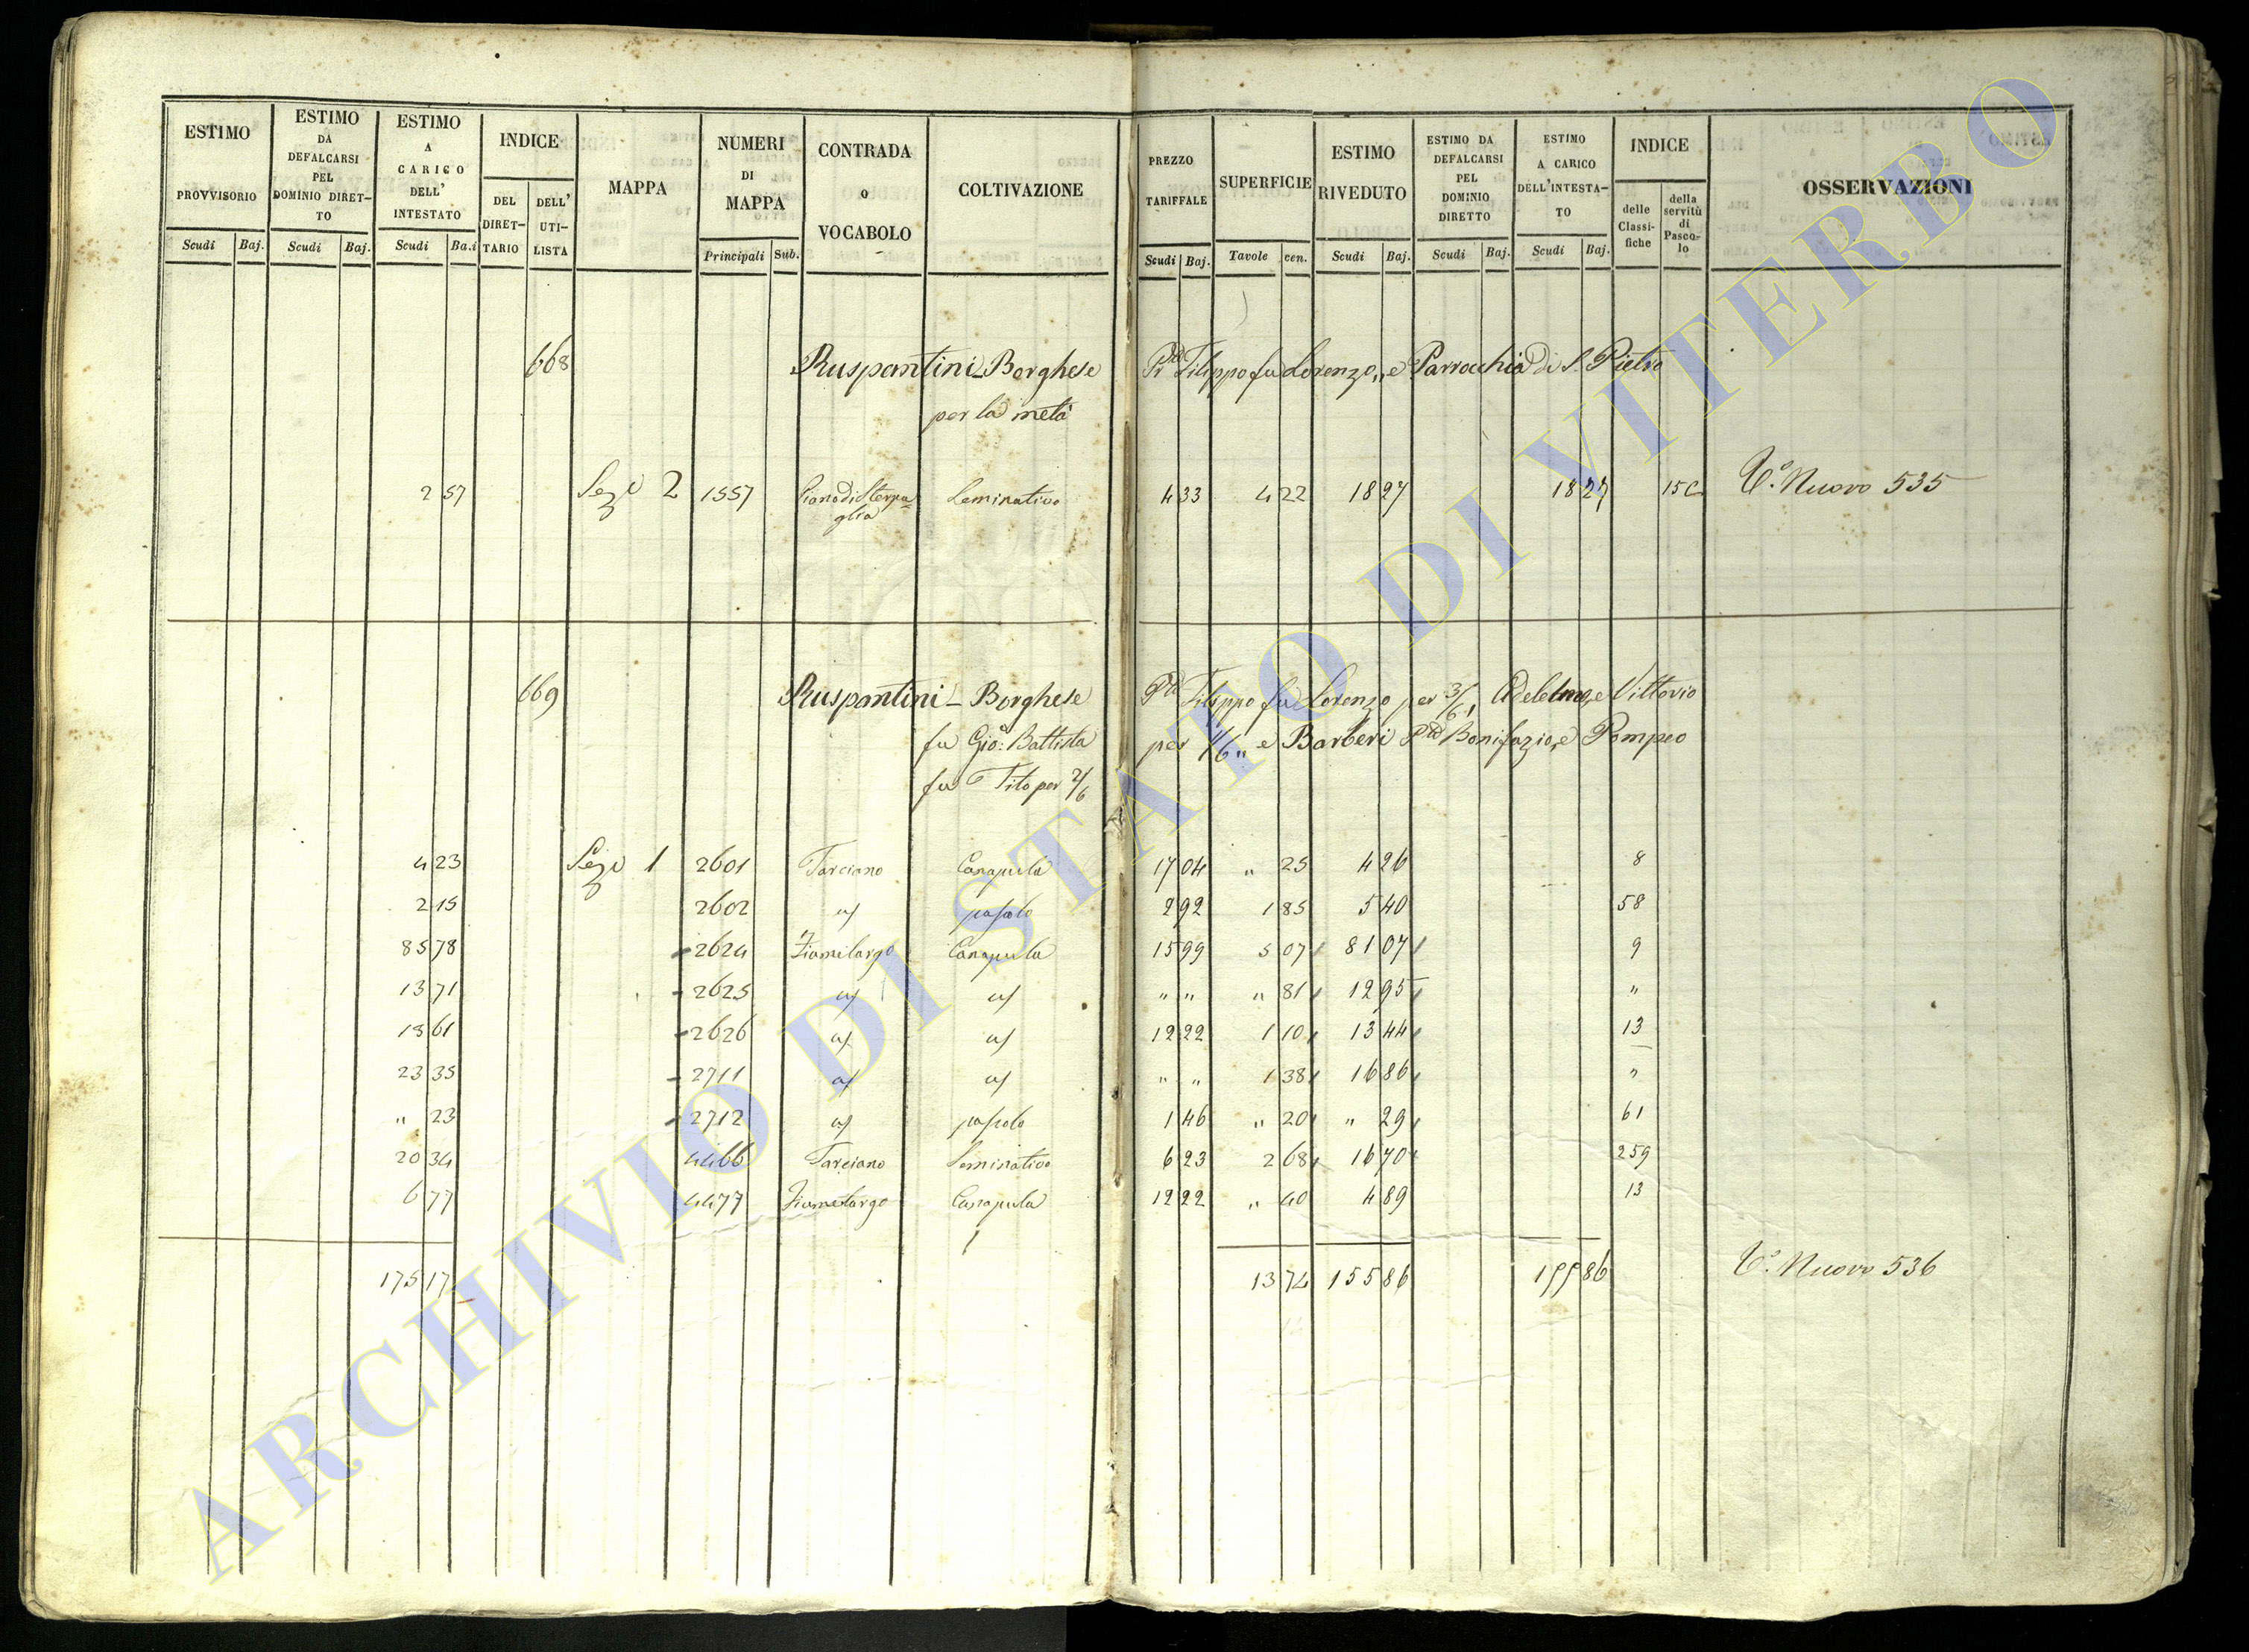 ESTIMO PROVVISORIO
Scudi Baj.
ESTIMO DA DEFALCARSI PEL DOMINIO DIRET-TO
Scudi Baj.
ESTIMO A CARICO DELL' INTESTATO
Scudi Ba.i
INDICE
DEL DIRET-TARIO
DELL' UTI-LISTA
MAPPA
NUMERI DI MAPPA
Principali Sub.
CONTRADA o VOCABOLO
COLTIVAZIONE
PREZZO TARIFFALE
Scudi Baj.
SUPERFICIE
Tavole cen.
ESTIMO RIVEDUTO
Scudi Baj.
ESTIMO DA DEFALCARSI PEL DOMINIO DIRETTO
Scudi Baj.
ESTIMO A CARICO DELL'INTESTA-TO
Scudi Baj.
INDICE
delle Classi-fiche
della servitù di Pasco-lo
OSSERVAZIONI
668 Ruspantini - Borghese Filippo fu Lorenzo,, e Parrocchia di S. Pietro
per la metà
2 57 Sez.e 2 1557 Piano di Sterpa=glia Seminativo 4 33 4 22 18 27 18 27 15 C V.° Nuovo 535
669 Ruspantini - Borghese Filippo fu Lorenzo per 3/6, Adelmo, e Vittorio
fu Gio: Battista per 1/6 ,, e Barberi Bonifazio, e Pompeo
fu Tito per 2/6
4 23 Sez.e 1 2601 Tarciano Canapula 17 04 ,, 25 4 26 8
2 15 2602 a/ pascolo 2 92 1 85 5 40 58
85 78 - 2624 Fiumelargo Canapula 15 99 5 07 81 07 9
13 71 - 2625 a/ a/ ,, ,, ,, 81 12 95 ,,
18 61 - 2626 a/ a/ 12 22 1 10 13 44 13
23 35 - 2711 a/ a/ ,, ,, 1 38 16 86 ,,
,, 23 - 2712 a/ pascolo 1 46 ,, 20 ,, 29 61
20 34 4466 Tarciano Seminativo 6 23 2 68 16 70 259
6 77 4477 Fiumelargo Canapula 12 22 ,, 40 4 89 13
175 17 13 74 155 86 155 86 V.° Nuovo 536
ARCHIVIO DI STATO DI VITERBO